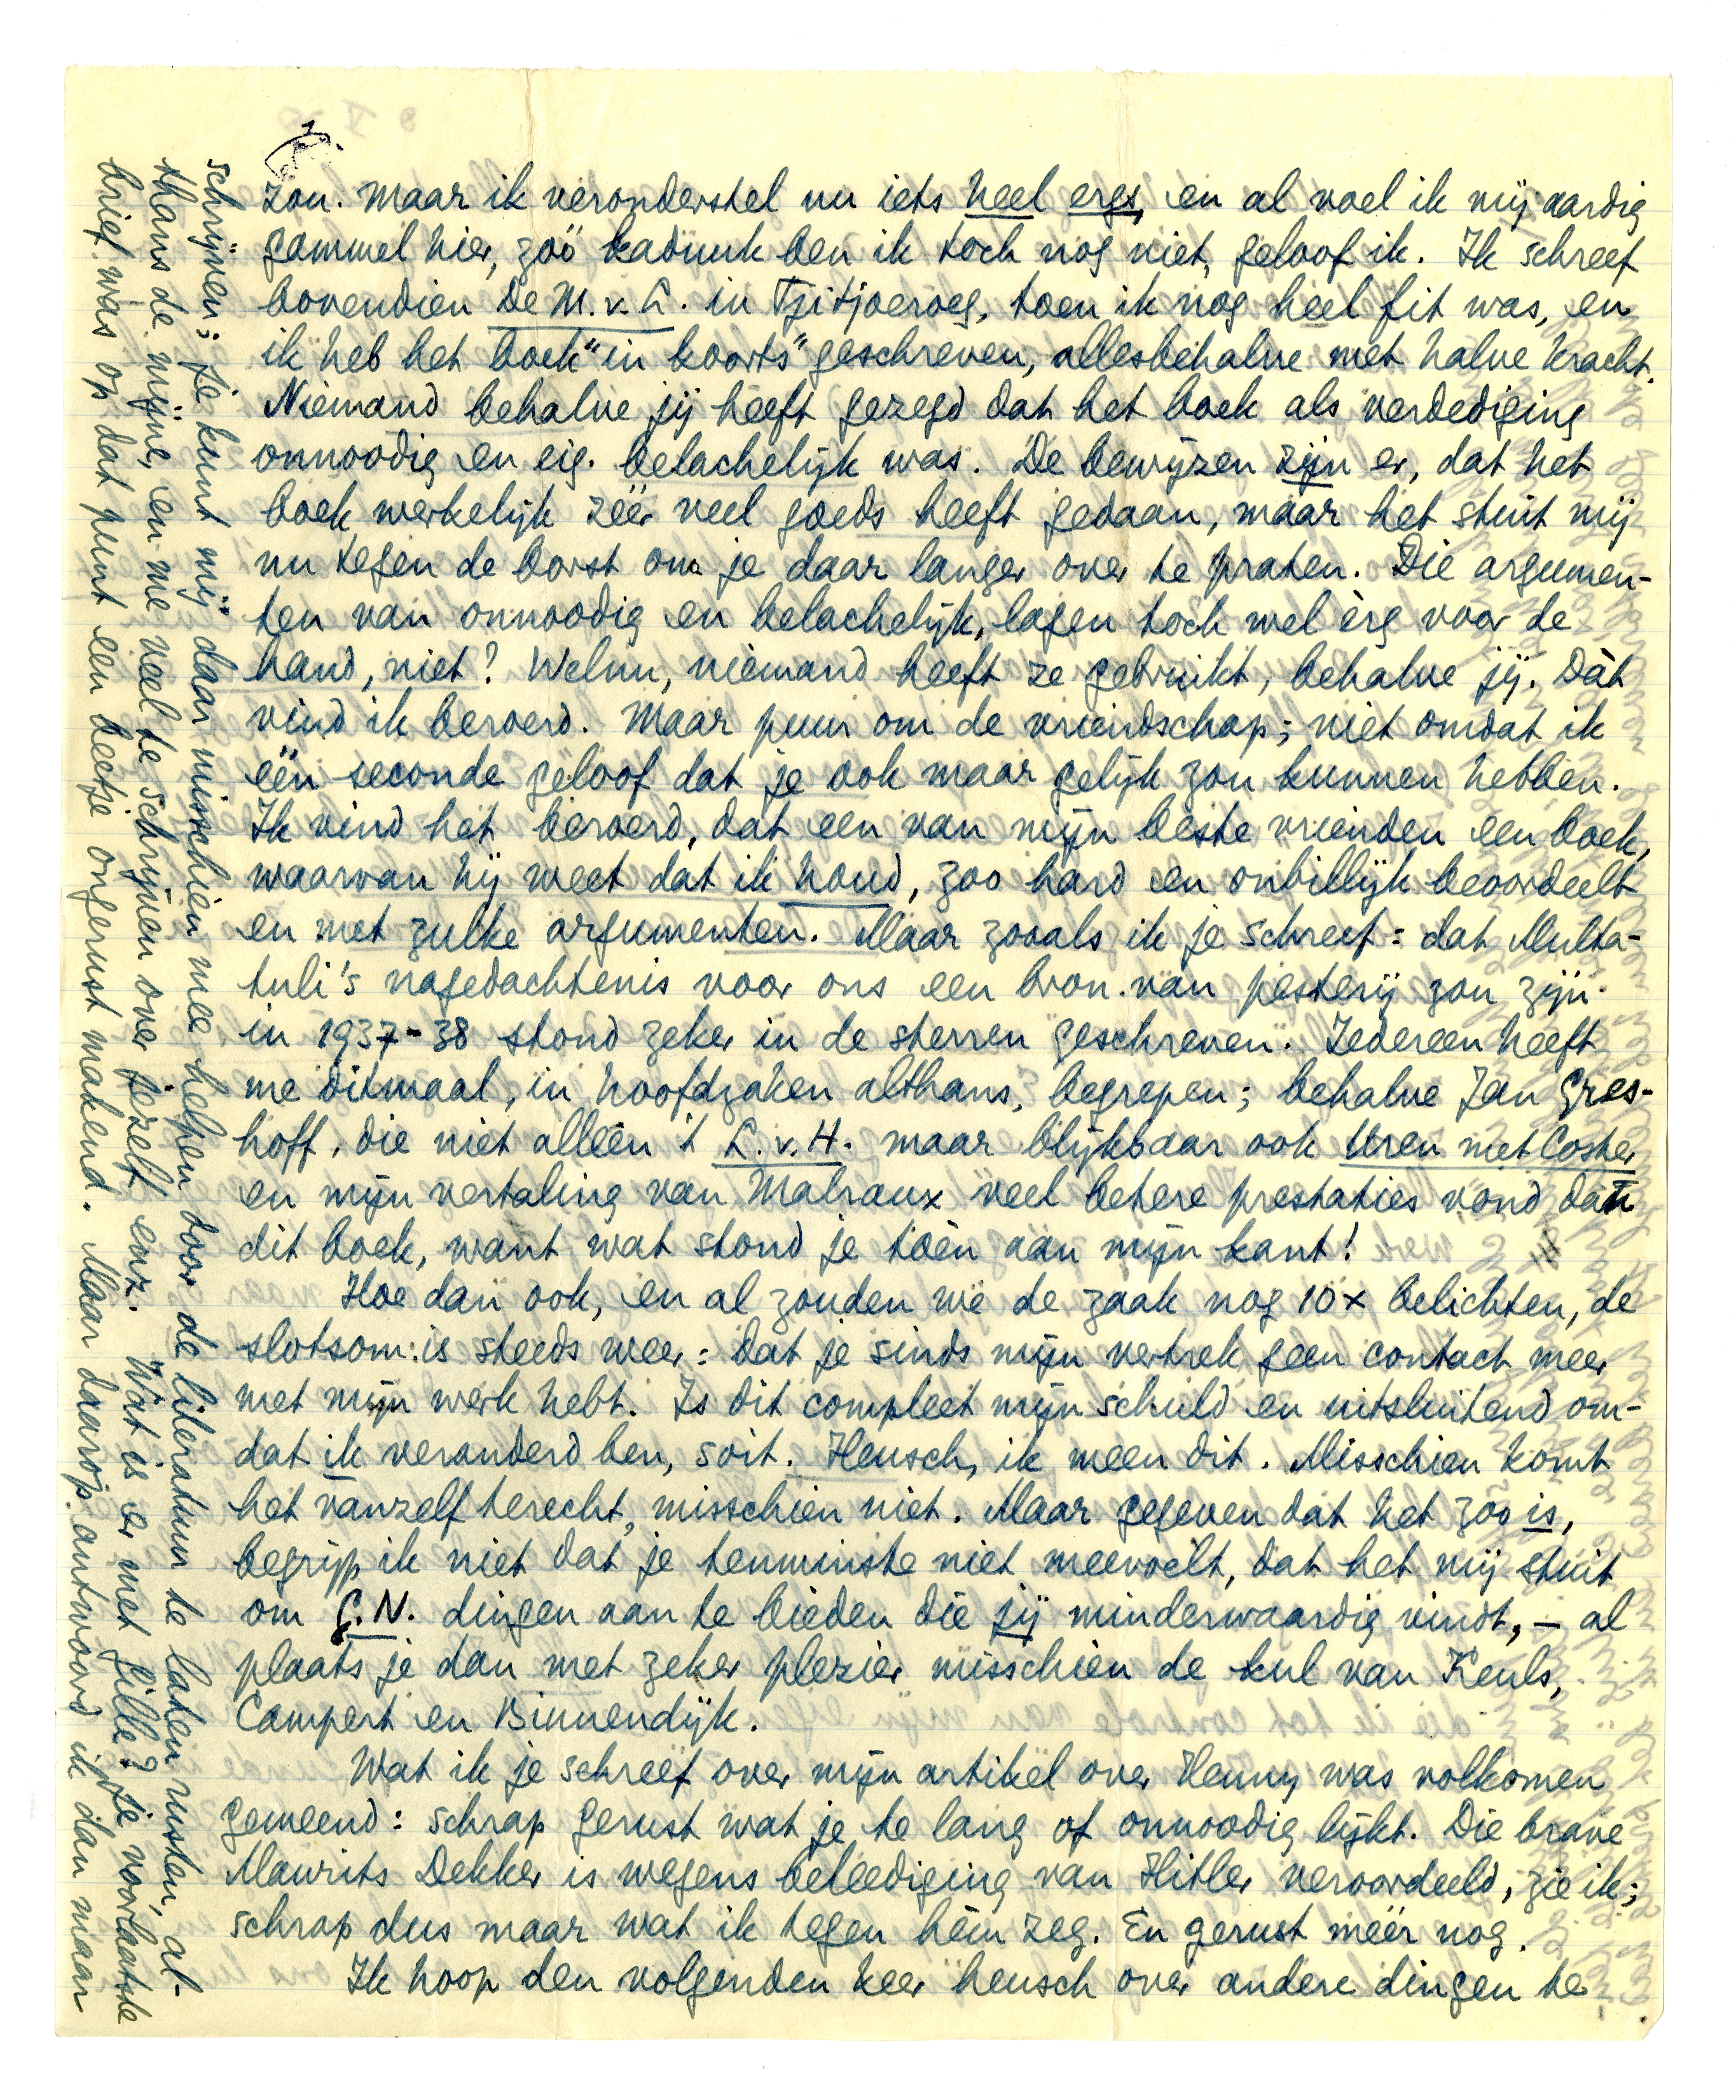 zou. Maar ik veronderstel nu iets heel ergs, en al voel ik mij aardig
gammel hier, zóó kaduuk ben ik toch nog niet, geloof ik. Ik schreef
bovendien De M. v. L. in Tjitjoeroeg, toen ik nog heel fit was, en
ik heb het boek "in koorts" geschreven, allesbehalve met halve kracht.
Niemand behalve jij heeft gezegd dat het boek als verdediging
onnoodig en eig. belachelijk was. De bewijzen zijn er, dat het
boek werkelijk zéér veel goeds heeft gedaan, maar het stuit mij
nu tegen de borst om je daar langer over te praten. Die argumen-
ten van onnoodig en belachelijk, lagen toch wel èrg voor de
hand, niet? Welnu, niemand heeft ze gebruikt, behalve jij. Dàt
vind ik beroerd. Maar puur om de vriendschap; niet omdat ik
één seconde geloof dat je ook maar gelijk zou kunnen hebben.
Ik vind het beroerd, dat een van mijn beste vrienden een boek,
waarvan hij weet dat ik houd, zoo hard en onbillijk beoordeelt
en met zulke argumenten. Maar zooals ik je schreef: dat Multa-
tuli's nagedachtenis voor ons een bron van pesterij zou zijn
in 1937-38 stond zeker in de sterren geschreven. Iedereen heeft
me ditmaal, in hoofdzaken althans, begrepen; behalve Jan Gres-
hoff, die niet alléén 't L. v. H. maar blijkbaar ook Uren met Coster
en mijn vertaling van Malraux veel betere prestaties vond dan
dit boek, want wat stond je tóén aan mijn kant!
Hoe dan ook, en al zouden we de zaak nog 10x belichten, de
slotsom is steeds weer: dat je sinds mijn vertrek geen contact meer
met mijn werk hebt. Is dit compleet mijn schuld en uitsluitend om-
dat ik veranderd ben, soit. Heusch, ik meen dit. Misschien komt
het vanzelf terecht, misschien niet. Maar gegeven dat het zoo is,
begrijp ik niet dat je tenminste niet meevoelt, dat het mij stuit
om G.N. dingen aan te bieden die jij minderwaardig vindt, – al
plaats je dan met zeker plezier misschien de kul van Keuls,
Campert en Binnendijk.
Wat ik je schreef over mijn artikel over Henny was volkomen
gemeend: schrap gerust wat je te lang of onnoodig lijkt. Die brave
Maurits Dekker is wegens beleediging van Hitler veroordeeld, zie ik;
schrap dus maar wat ik tegen hèm zeg. En gerust méér nog.
Ik hoop den volgenden keer heusch over andere dingen te
schrijven; je kunt mij daar misschien mee helpen door de literatuur te laten rusten, al-
thans de mijne, en me veel te schrijven over jezelf enz. Wat is er met Gille? Je voorlaatste
brief was op dat punt een beetje ongerust makend. Maar daarop antwoord ik dan maar